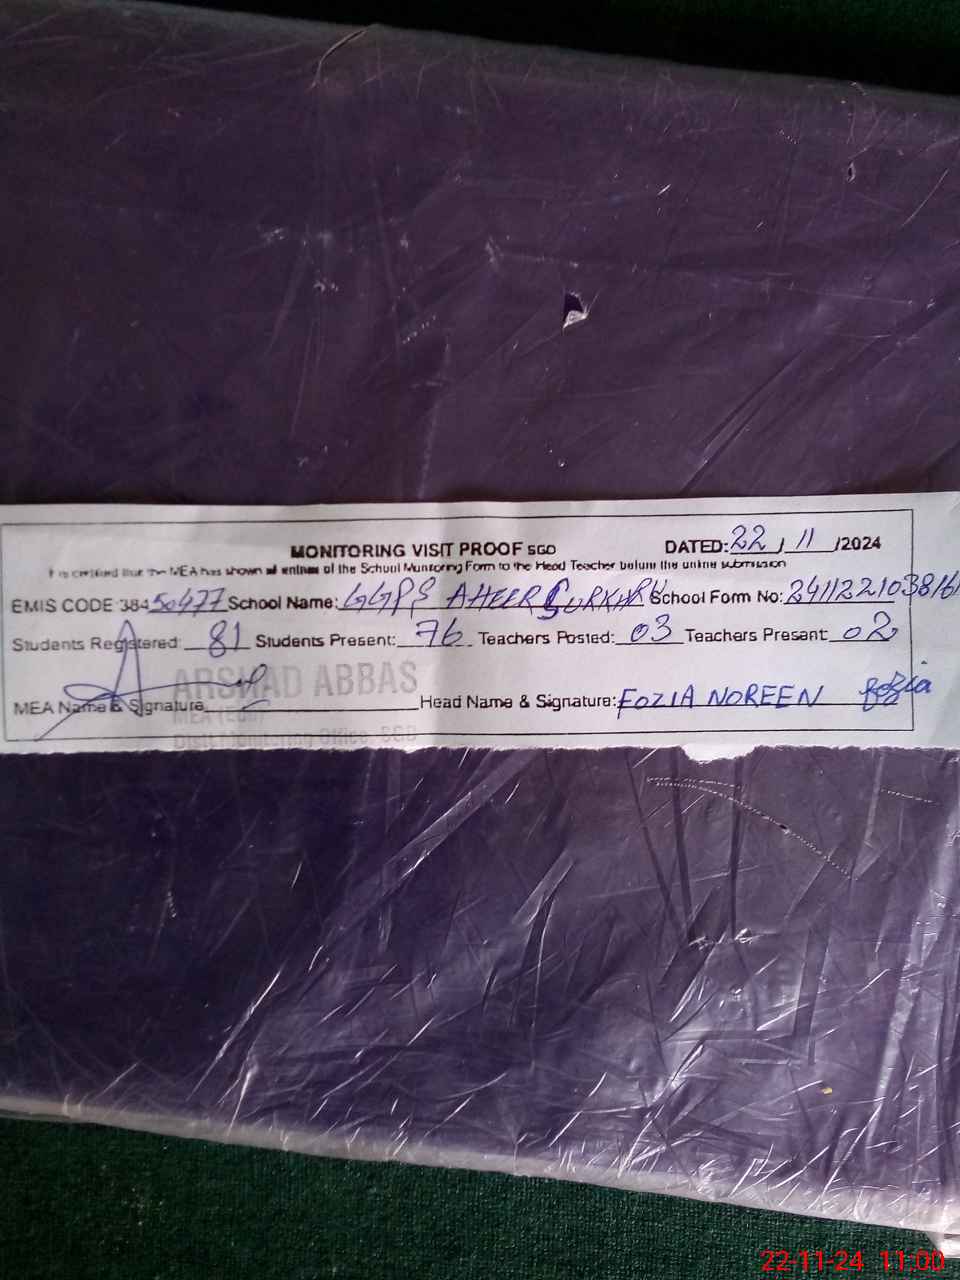 MONITORING VISIT PROOF SGD DATED: 22 / 11 /2024
It is certified that the MEA has shown all entries of the School Monitoring Form to the Head Teacher before the online submission
EMIS CODE 384 50477 School Name: GGPS AHEER School Form No: 24112210381
Students Registered: 81 Students Present: 76 Teachers Posted: 03 Teachers Present: 02
ARSHAD ABBAS
MEA Name & Signature Head Name & Signature: FOZIA NOREEN fozia
MEA (Edu)
Distt Monitoring Office, SGD
22-11-24 11:00